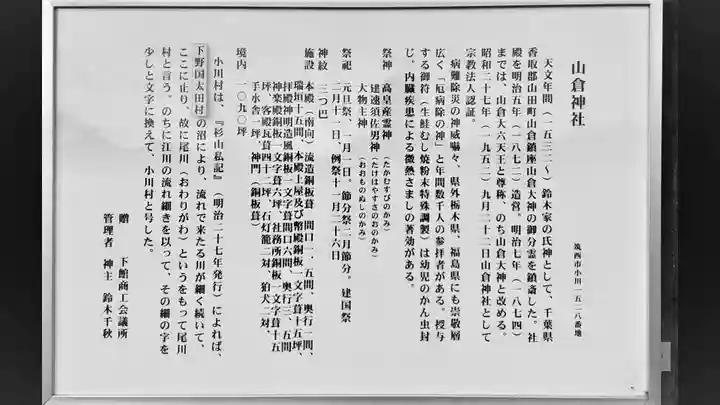 山倉神社
筑西市小川一五二八番地
天文年間(一五三二〜)鈴木家の氏神として、千葉県
香取郡山田町山倉鎮座山倉大神の御分霊を鎮斎した。社
殿を明治五年(一八七二)造営。明治七年(一八七四)
までは、山倉大六天王と尊称、のち山倉大神と改める。
昭和二十七年(一九五二)九月二十二日山倉神社として
宗教法人認証。
病難除災の神威嚇々、県外栃木県、福島県にも崇敬層
広く「厄病除の神」と年間数千人の参拝者がある。授与
する御符(生鮭むし焼粉末特殊調製)は幼児のかん虫封
じ、内臓疾患による微熱さましの著効がある。
祭神 高皇産霊神(たかむすびのかみ)
建速須佐男神(たけはやすさのおのかみ)
大物主神(おおものぬしのかみ)
祭祀 元旦祭、一月一日。節分祭二月節分。建国祭
二月十一日、例祭十一月二十六日
神紋 三つ巴
施設 本殿(南向)流造銅板葺 間口一.五間、奥行一間、
瑞垣十五間、本殿上屋及び幣殿銅板一文字葺十五坪、
拝殿神明造風銅板一文字葺間口六間、奥行三.五間
神楽殿銅板一文字葺六坪、社務所銅板一文字葺十五
坪、客殿瓦葺四十二坪、石灯籠二対、狛犬二対、
手水舎一坪、神門(銅板葺)
境内 一〇九〇坪
小川村は、『杉山私記』(明治二十七年発行)によれば、
下野国太田村の沼により、流れで来たる川が細く続いて、
ここに止り、故に尾川(おわりがわ)というをもって尾川
村と言う。のちに江川の流れ細きを以って、その細の字を
少しと文字に換えて、小川村と号した。
贈 下館商工会議所
管理者 神主 鈴木千秋